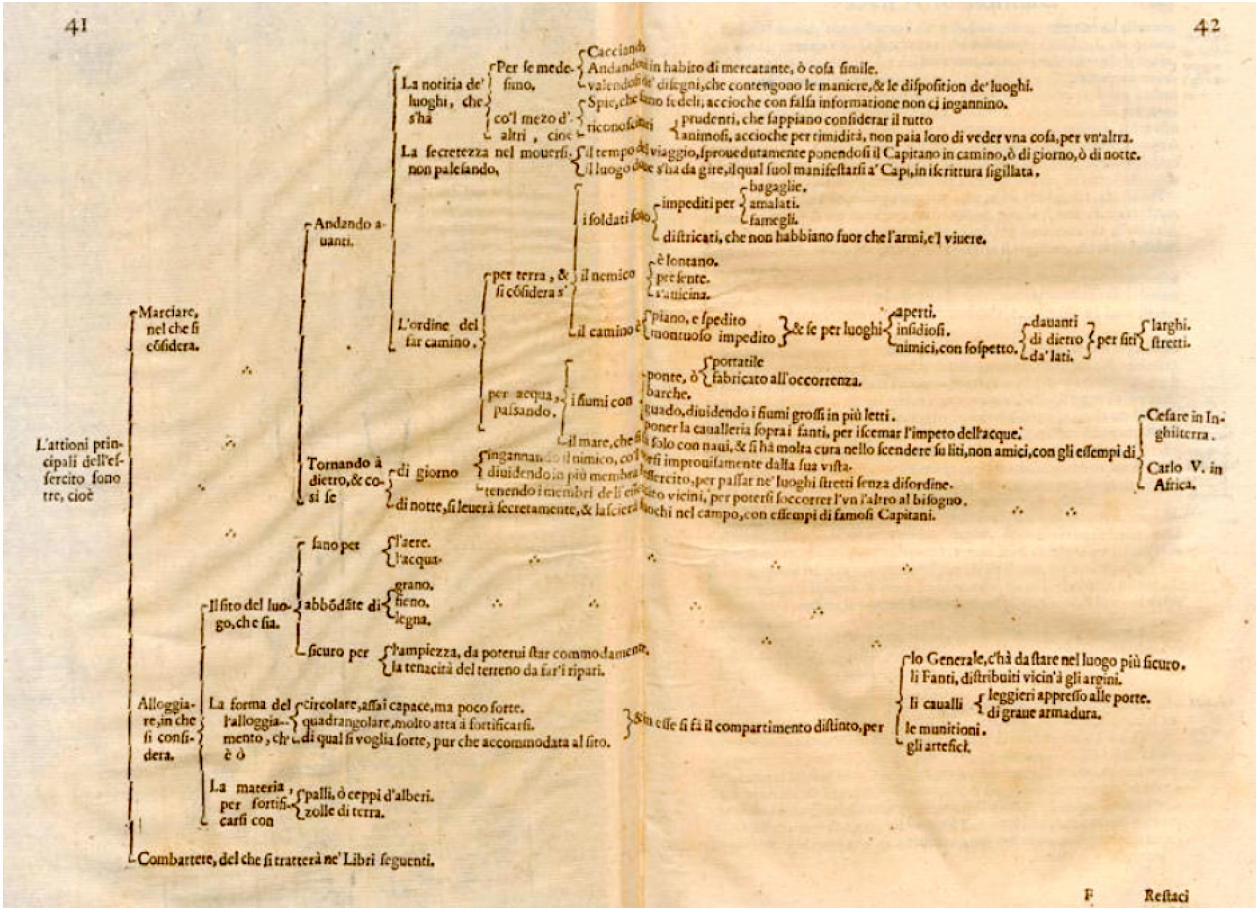 41
42
L'attioni prin-
cipali dell'es-
sercito sono
tre, cioè
Marciare,
nel che si
cõsidera.
Andando a-
uanti.
La notitia de'
luoghi, che
s'hà
Per se mede-
simo.
Cacciando
Andando in habito di mercatante, ò cosa simile.
valendosi de' disegni, che contengono le maniere, & le disposition de' luoghi.
co'l mezo d'-
altri, cioè
Spie, che sano fedeli; accioche con falsa informatione non ci ingannino.
riconoscitori
prudenti, che sappiano considerar il tutto
animosi, accioche per timidità, non paia loro di veder vna cosa, per vn'altra.
La secretezza nel mouersi.
non palesando,
il tempo del viaggio, sprouedutamente ponendosi il Capitano in camino, ò di giorno, ò di notte.
il luogo doue s'ha da gire, il qual suol manifestarsi a' Capi, in iscrittura sigillata.
L'ordine del
far camino.
per terra, &
si cõsidera s'
i soldati sono
impediti per
bagaglie.
amalati.
famegli.
districati, che non habbiano fuor che l'armi, e'l viuere.
il nemico
è lontano.
presente.
s'auicina.
il camino è
piano, e spedito
montuoso impedito
& se per luoghi
aperti.
insidiosi.
nimici, con sospetto.
dauanti
di dietro
da' lati.
per siti
larghi.
stretti.
per acqua,
passando.
i fiumi con
ponte, ò
portatile
fabricato all'occorrenza.
barche.
guado, diuidendo i fiumi grossi in più letti.
poner la caualleria sopra i fanti, per iscemar l'impeto dell'acque.
il mare, che si fà solo con naui, & si hà molta cura nello scendere su liti, non amici, con gli essempi di
Cesare in In-
ghilterra.
Carlo V. in
Africa.
Tornando à
dietro, & co-
si se
di giorno
ingannando il nimico, co'l leuarsi improuisamente dalla sua vista.
diuidendo in più membra l'essercito, per passar ne' luoghi stretti senza disordine.
tenendo i membri dell'essercito vicini, per potersi soccorrer l'vn l'altro al bisogno.
di notte, si leuerà secretamente, & lascierà fuochi nel campo, con essempi di famosi Capitani.
Alloggia-
re, in che
si consi-
dera.
Il sito del luo-
go, che sia.
sano per
l'aere.
l'acqua.
abbõdãte di
grano.
fieno.
legna.
sicuro per
l'ampiezza, da poterui star commodamente.
la tenacità del terreno da far'i ripari.
La forma del
l'alloggia-
mento, che
è ò
circolare, assai capace, ma poco forte.
quadrangolare, molto atta à fortificarsi.
di qual si voglia sorte, pur che accommodata al sito.
& in esse si fà il compartimento distinto, per
lo Generale, c'hà da stare nel luogo più sicuro.
li Fanti, distribuiti vicin'à gli argini.
li caualli
leggieri appresso alle porte.
di graue armadura.
le munitioni.
gli artefici.
La materia,
per fortifi-
carsi con
palli, ò ceppi d'alberi.
zolle di terra.
Combattere, del che si tratterà ne' Libri seguenti.
F
Restaci